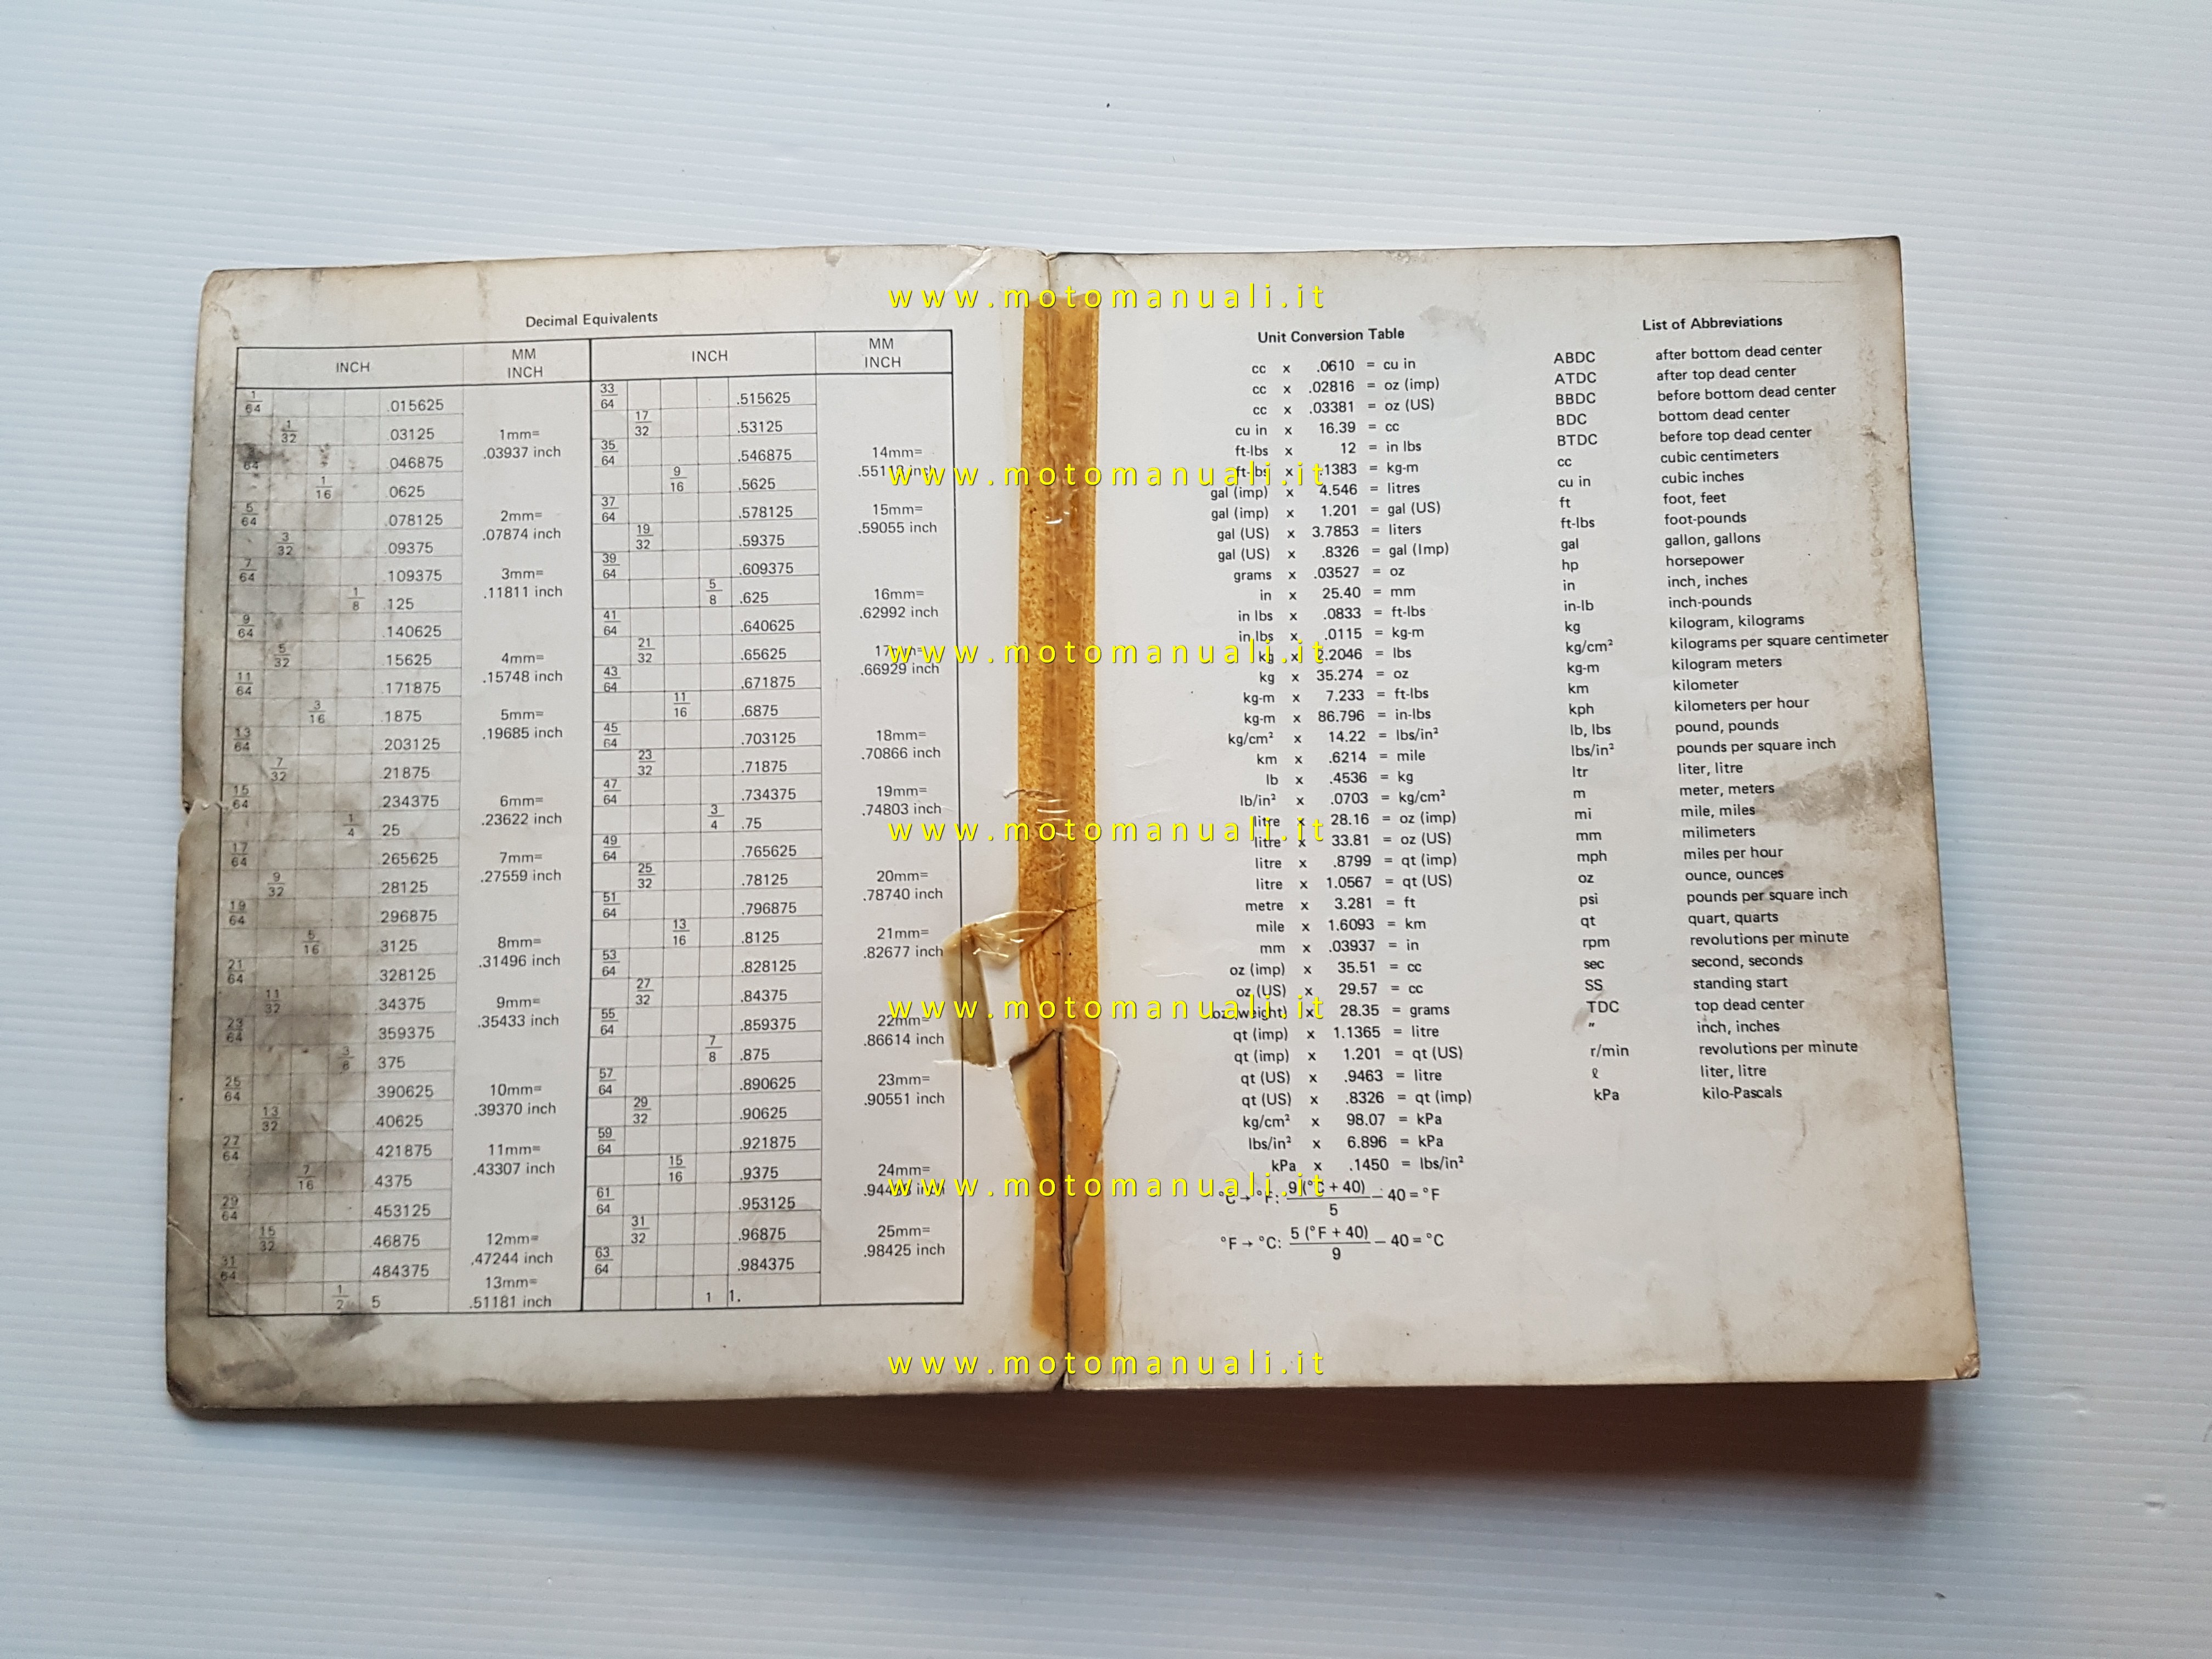 www.motomanuali.it
Decimal Equivalents
INCH MM INCH INCH MM INCH
1/64 .015625
1/32 .03125 1mm= .03937 inch
3/64 .046875
1/16 .0625
5/64 .078125 2mm= .07874 inch
3/32 .09375
7/64 .109375 3mm= .11811 inch
1/8 .125
9/64 .140625
5/32 .15625 4mm= .15748 inch
11/64 .171875
3/16 .1875 5mm= .19685 inch
13/64 .203125
7/32 .21875
15/64 .234375 6mm= .23622 inch
1/4 25
17/64 .265625 7mm= .27559 inch
9/32 .28125
19/64 296875
5/16 3125 8mm= .31496 inch
21/64 328125
11/32 .34375 9mm= .35433 inch
23/64 359375
3/8 375
25/64 390625 10mm= .39370 inch
13/32 .40625
27/64 421875 11mm= .43307 inch
7/16 4375
29/64 453125
15/32 .46875 12mm= .47244 inch
31/64 484375
1/2 5 13mm= .51181 inch
33/64 .515625
17/32 .53125
35/64 .546875 14mm= .55118 inch
9/16 .5625
37/64 .578125 15mm= .59055 inch
19/32 .59375
39/64 .609375
5/8 .625 16mm= .62992 inch
41/64 .640625
21/32 .65625 17mm= .66929 inch
43/64 .671875
11/16 .6875
45/64 .703125 18mm= .70866 inch
23/32 .71875
47/64 .734375 19mm= .74803 inch
3/4 .75
49/64 .765625
25/32 .78125 20mm= .78740 inch
51/64 .796875
13/16 .8125 21mm= .82677 inch
53/64 .828125
27/32 .84375
55/64 .859375 22mm= .86614 inch
7/8 .875
57/64 .890625 23mm= .90551 inch
29/32 .90625
59/64 .921875
15/16 .9375 24mm= .94488 inch
61/64 .953125
31/32 .96875 25mm= .98425 inch
63/64 .984375
1 1.
www.motomanuali.it
www.motomanuali.it
www.motomanuali.it
www.motomanuali.it
www.motomanuali.it
www.motomanuali.it
Unit Conversion Table
cc x .0610 = cu in
cc x .02816 = oz (imp)
cc x .03381 = oz (US)
cu in x 16.39 = cc
ft-lbs x 12 = in lbs
ft-lbs x .1383 = kg-m
gal (imp) x 4.546 = litres
gal (imp) x 1.201 = gal (US)
gal (US) x 3.7853 = liters
gal (US) x .8326 = gal (Imp)
grams x .03527 = oz
in x 25.40 = mm
in lbs x .0833 = ft-lbs
in lbs x .0115 = kg-m
kg x 2.2046 = lbs
kg x 35.274 = oz
kg-m x 7.233 = ft-lbs
kg-m x 86.796 = in-lbs
kg/cm² x 14.22 = lbs/in²
km x .6214 = mile
lb x .4536 = kg
lb/in² x .0703 = kg/cm²
litre x 28.16 = oz (imp)
litre x 33.81 = oz (US)
litre x .8799 = qt (imp)
litre x 1.0567 = qt (US)
metre x 3.281 = ft
mile x 1.6093 = km
mm x .03937 = in
oz (imp) x 35.51 = cc
oz (US) x 29.57 = cc
oz (weight) x 28.35 = grams
qt (imp) x 1.1365 = litre
qt (imp) x 1.201 = qt (US)
qt (US) x .9463 = litre
qt (US) x .8326 = qt (imp)
kg/cm² x 98.07 = kPa
lbs/in² x 6.896 = kPa
kPa x .1450 = lbs/in²
°C → °F: 9 (°C + 40) / 5 − 40 = °F
°F → °C: 5 (°F + 40) / 9 − 40 = °C
List of Abbreviations
ABDC after bottom dead center
ATDC after top dead center
BBDC before bottom dead center
BDC bottom dead center
BTDC before top dead center
cc cubic centimeters
cu in cubic inches
ft foot, feet
ft-lbs foot-pounds
gal gallon, gallons
hp horsepower
in inch, inches
in-lb inch-pounds
kg kilogram, kilograms
kg/cm² kilograms per square centimeter
kg-m kilogram meters
km kilometer
kph kilometers per hour
lb, lbs pound, pounds
lbs/in² pounds per square inch
ltr liter, litre
m meter, meters
mi mile, miles
mm milimeters
mph miles per hour
oz ounce, ounces
psi pounds per square inch
qt quart, quarts
rpm revolutions per minute
sec second, seconds
SS standing start
TDC top dead center
" inch, inches
r/min revolutions per minute
ℓ liter, litre
kPa kilo-Pascals